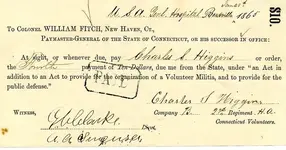 U S A Genl. Hospital 1865
To Colonel WILLIAM FITCH, New Haven, Ct.,
Paymaster-General of the State of Connecticut, or his successor in office:
At sight, or whenever due, pay Charles S Higgins or order,
the Fourth payment of Ten Dollars, due me from the State, under "An Act in
addition to an Act to provide for the organization of a Volunteer Militia, and to provide for
the public defense."
$10
PAID
Charles S Higgins
Witness, Company B 2nd Regiment H.A.
Connecticut Volunteers.